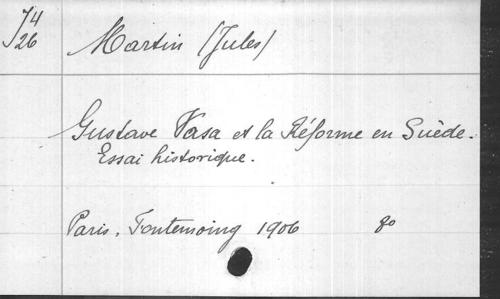 74
26
Martin (Jules)
Gustave Vasa et la Réforme en Suède.
Essai historique.
Paris, Fontemoing 1906 8o